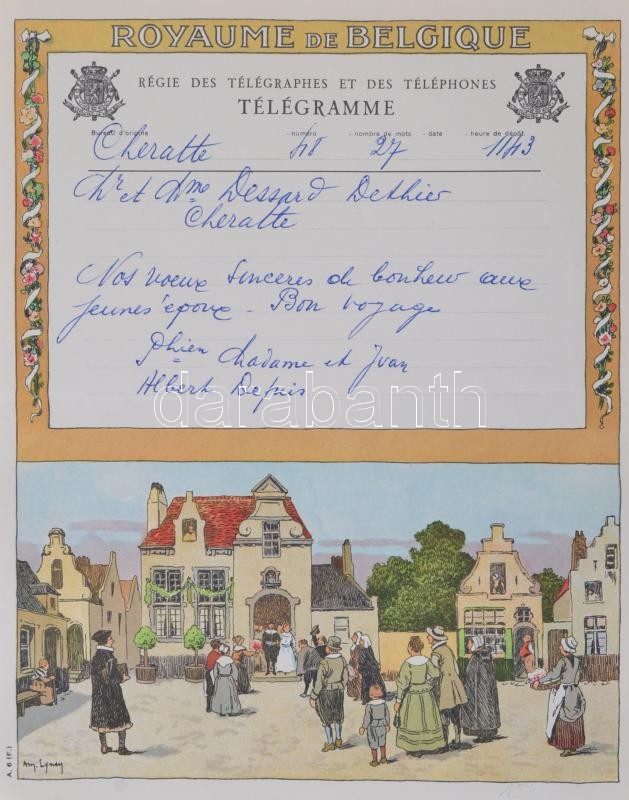 ROYAUME DE BELGIQUE
RÉGIE DES TÉLÉGRAPHES ET DES TÉLÉPHONES
TÉLÉGRAMME
Bureau d'origine - numéro - nombre de mots - date - heure de dépôt
Cheratte 48 27 1143
Mr et Mme Dessard Dethier
Cheratte
Nos voeux sinceres de bonheur aux
jeunes époux - Bon voyage
Madame et Yvan
Albert Depuis
darabanth
Am. Lynen
A. 6 (F.)